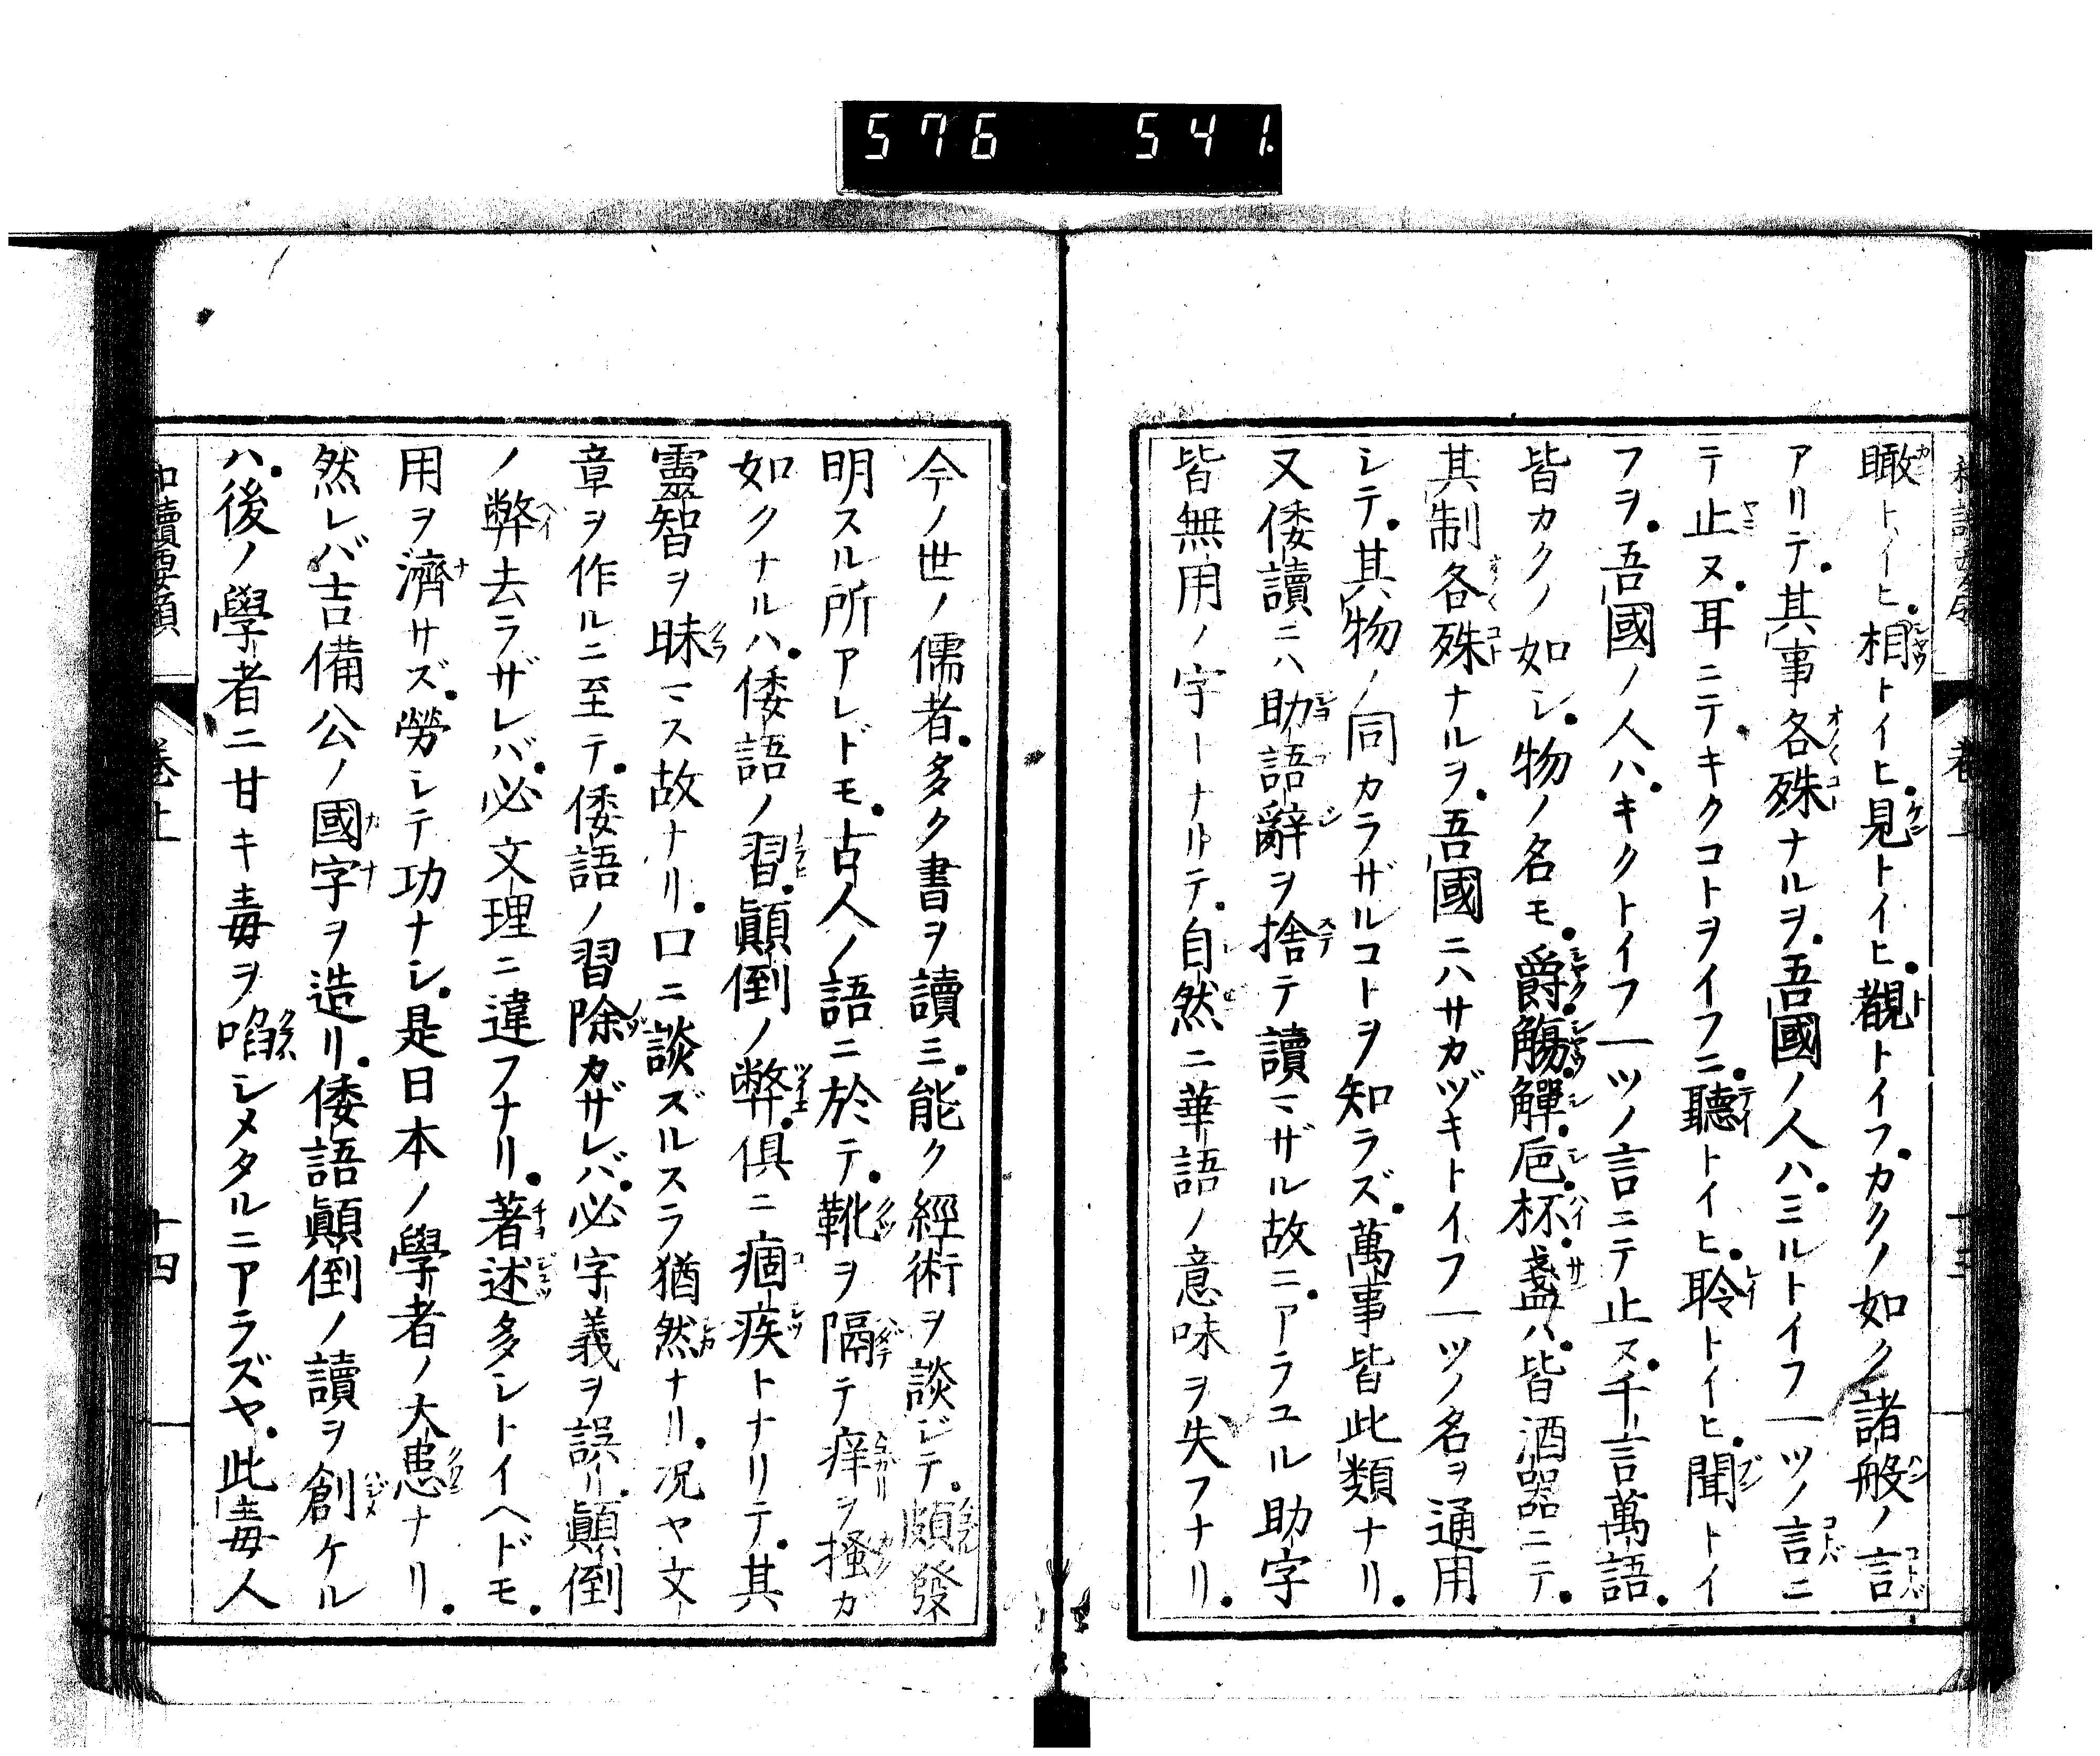 576 541
瞰トイヒ。相トイヒ。見トイヒ。觀トイフ。カクノ如ク諸般ノ言
アリテ。其事各殊ナルヲ。吾國ノ人ハ。ミルトイフ一ツノ言ニ
テ止ヌ。耳ニテキクコトヲイフニ。聽トイヒ。聆トイヒ。聞トイ
フヲ。吾國ノ人ハ。キクトイフ一ツノ言ニテ止ヌ。千言萬語。
皆カクノ如シ。物ノ名モ。爵。觴。觶。巵。杯。盞ハ。皆酒器ニテ。
其制各殊ナルヲ。吾國ニハサカヅキトイフ一ツノ名ヲ通用
シテ。其物ノ同カラザルコトヲ知ラズ。萬事皆此類ナリ。
又倭讀ニハ助語辭ヲ捨テ讀ミザル故ニ。アラユル助字
皆無用ノ字トナリテ。自然ニ華語ノ意味ヲ失フナリ。
今ノ世ノ儒者。多ク書ヲ讀ミ。能ク經術ヲ談ジテ。頗發
明スル所アレドモ。古人ノ語ニ於テ。靴ヲ隔テ痒ヲ搔カ
如クナルハ。倭語ノ習。顚倒ノ弊。俱ニ痼疾トナリテ。其
靈智ヲ昧ミス故ナリ。口ニ談ズルスラ猶然ナリ。況ヤ文
章ヲ作ルニ至テ。倭語ノ習除カザレバ。必字義ヲ誤リ。顚倒
ノ弊去ラザレバ。必文理ニ違フナリ。著述多シトイヘドモ。
用ヲ濟サズ。勞シテ功ナシ。是日本ノ學者ノ大患ナリ。
然レバ吉備公ノ國字ヲ造リ。倭語顚倒ノ讀ヲ創ケル
ハ。後ノ學者ニ甘キ毒ヲ啗シメタルニアラズヤ。此毒人
和讀要領 卷上 十四